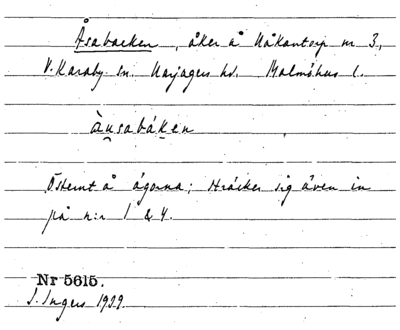 Åsabacken, åker å Håkantorp nr 3,
V. Karaby sn. Harjagers hd. Malmöhus l.
àusabáken
Österut å ägorna; sträcker sig även in
på n:r 1 & 4.
Nr 5615.
I. Ingers 1929.